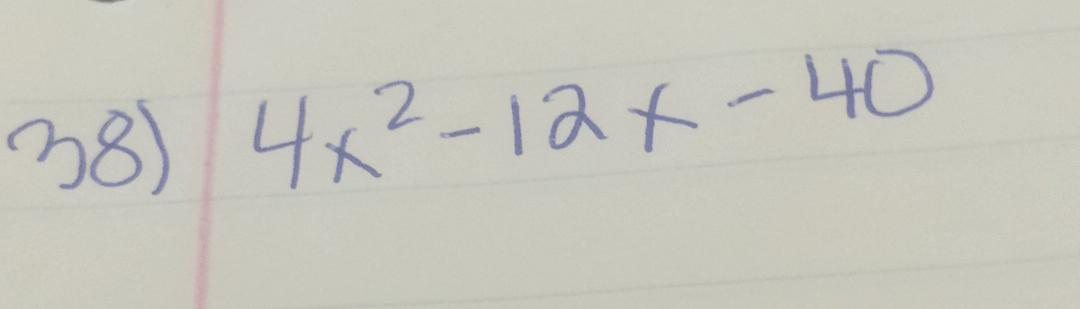 38) 4x² - 12x - 40